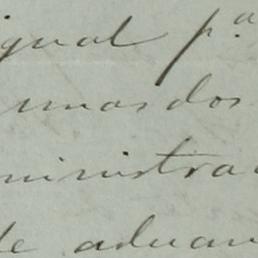 igual p.ª
unas dos
ministra
de aduan